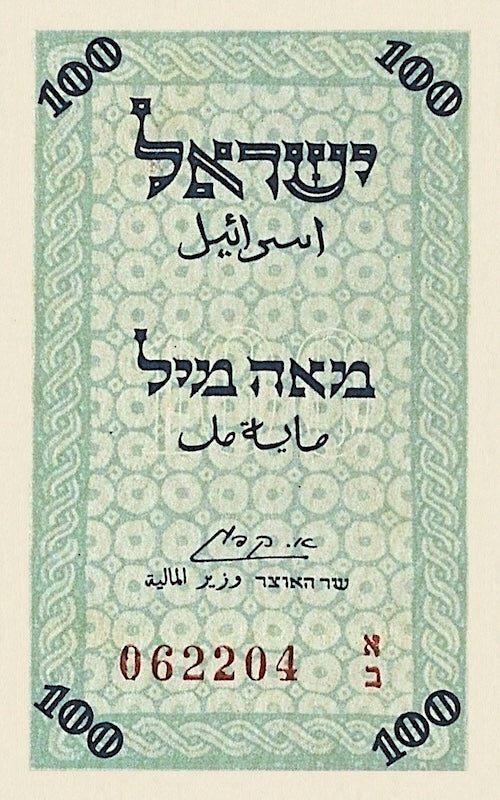 100 100
ישראל
اسرائيل
מאה מיל
ماية مل
א. קפלן
שר האוצר وزير المالية
062204 א
ב
100 100